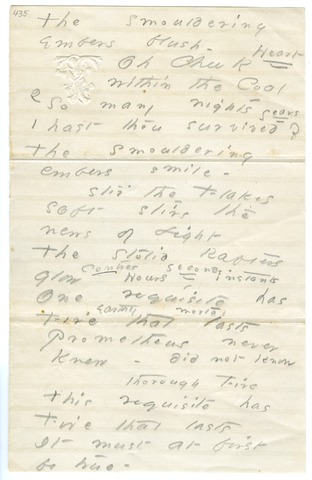 435.
the Smouldering
Embers blush -
Oh Cheek Heart
within the Coal
So many nights years
hast thou survived?
the Smouldering
embers smile -
Soft stirs the
news of Light
the stolid Rafters
seconds
glow Hours instants
One requisite has
Earthly mortal
Fire that lasts
Prometheus never
Knew - did not know
thorough Fire
this requisite has
Fire that lasts
It must at first
be true -